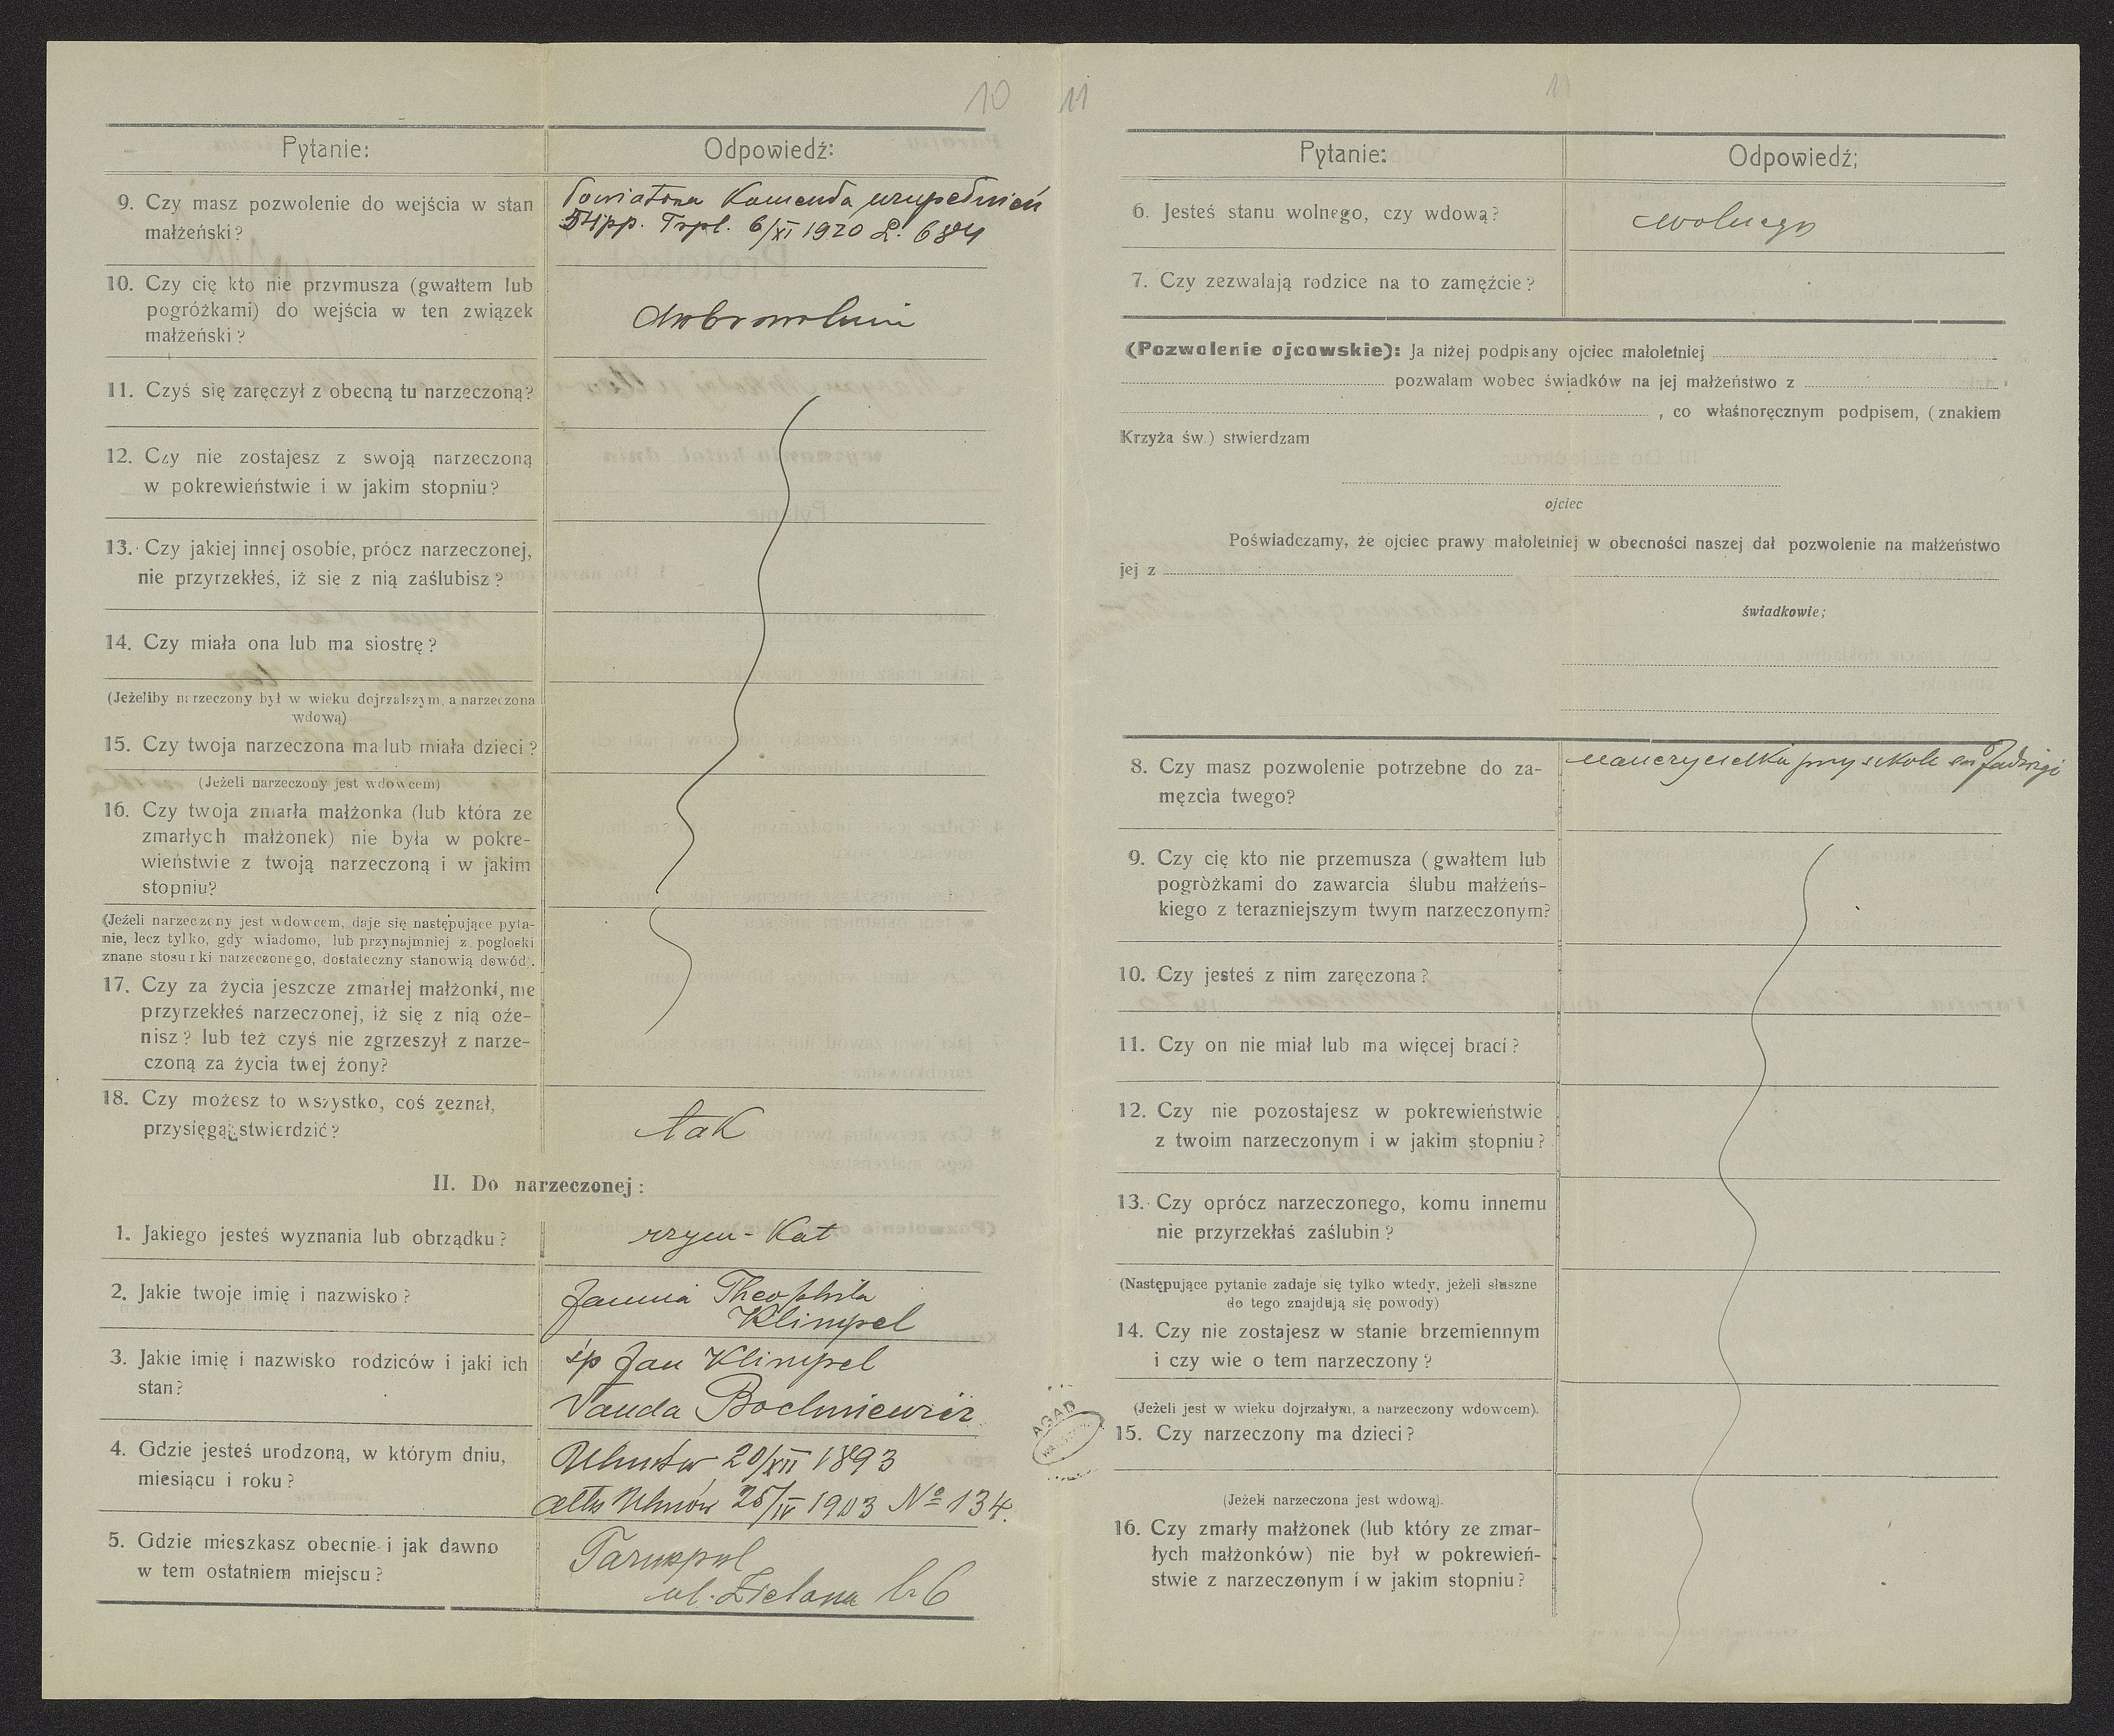 10
Pytanie:
Odpowiedź:
9. Czy masz pozwolenie do wejścia w stan
małżeński?
Powiatowa Komenda uzupełnień
54pp. Trpl. 6/XI 1920 L. 684
10. Czy cię kto nie przymusza (gwałtem lub
pogróżkami) do wejścia w ten związek
małżeński?
dobrowolnie
11. Czyś się zaręczył z obecną tu narzeczoną?
12. Czy nie zostajesz z swoją narzeczoną
w pokrewieństwie i w jakim stopniu?
13. Czy jakiej innej osobie, prócz narzeczonej,
nie przyrzekłeś, iż się z nią zaślubisz?
14. Czy miała ona lub ma siostrę?
(Jeżeliby narzeczony był w wieku dojrzalszym, a narzeczona
wdową)
15. Czy twoja narzeczona ma lub miała dzieci?
(Jeżeli narzeczony jest wdowcem)
16. Czy twoja zmarła małżonka (lub która ze
zmarłych małżonek) nie była w pokre-
wieństwie z twoją narzeczoną i w jakim
stopniu?
(Jeżeli narzeczony jest wdowcem, daje się następujące pyta-
nie, lecz tylko, gdy wiadomo, lub przynajmniej z pogłoski
znane stosunki narzeczonego, dostateczny stanowią dowód).
17. Czy za życia jeszcze zmarłej małżonki, nie
przyrzekłeś narzeczonej, iż się z nią oże-
nisz? lub też czyś nie zgrzeszył z narze-
czoną za życia twej żony?
18. Czy możesz to wszystko, coś zeznał,
przysięgą stwierdzić?
tak
II. Do narzeczonej:
1. Jakiego jesteś wyznania lub obrządku?
rzym-Kat
2. Jakie twoje imię i nazwisko?
Janina Theophila
Klimpel
3. Jakie imię i nazwisko rodziców i jaki ich
stan?
śp Jan Klimpel
Vanda Bochniewicz
4. Gdzie jesteś urodzoną, w którym dniu,
miesiącu i roku?
Uhnów 20/XII 1893
atts Uhnów 25/IV 1903 No 134.
5. Gdzie mieszkasz obecnie i jak dawno
w tem ostatniem miejscu?
Tarnopol
ul. Zielona l. 6
11
11
Pytanie:
Odpowiedź;
6. Jesteś stanu wolnego, czy wdową?
wolnego
7. Czy zezwalają rodzice na to zamęźcie?
(Pozwolenie ojcowskie): Ja niżej podpisany ojciec małoletniej
pozwalam wobec świadków na jej małżeństwo z
, co właśnoręcznym podpisem, (znakiem
Krzyża św.) stwierdzam
ojciec
Poświadczamy, że ojciec prawy małoletniej w obecności naszej dał pozwolenie na małżeństwo
jej z
świadkowie;
8. Czy masz pozwolenie potrzebne do za-
męzcia twego?
nauczycielka przy szkole św Jadwigi
9. Czy cię kto nie przemusza (gwałtem lub
pogròżkami do zawarcia ślubu małżeńs-
kiego z terazniejszym twym narzeczonym?
10. Czy jesteś z nim zaręczona?
11. Czy on nie miał lub ma więcej braci?
12. Czy nie pozostajesz w pokrewieństwie
z twoim narzeczonym i w jakim stopniu?
13. Czy oprócz narzeczonego, komu innemu
nie przyrzekłaś zaślubin?
(Następujące pytanie zadaje się tylko wtedy, jeżeli słuszne
do tego znajdują się powody)
14. Czy nie zostajesz w stanie brzemiennym
i czy wie o tem narzeczony?
(Jeżeli jest w wieku dojrzałym, a narzeczony wdowcem).
15. Czy narzeczony ma dzieci?
(Jeżeli narzeczona jest wdową).
16. Czy zmarły małżonek (lub który ze zmar-
łych małżonków) nie był w pokrewień-
stwie z narzeczonym i w jakim stopniu?
AGAD